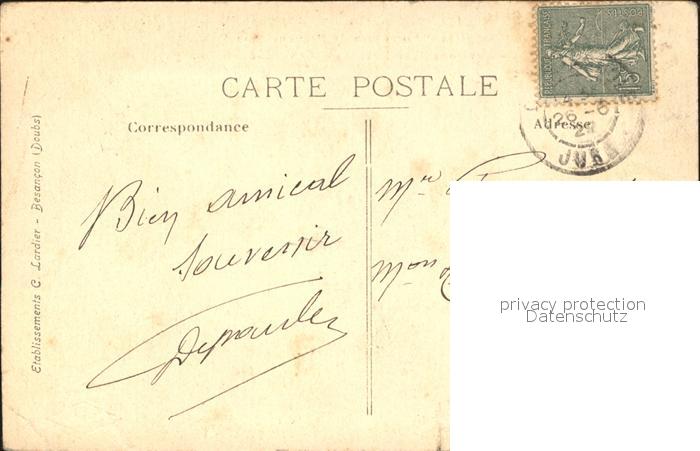 REPUBLIQUE FRANÇAISE
POSTES
15
CARTE POSTALE
Correspondance
Adresse
26 -6
JURA
Etablissements C. Lardier - Besançon (Doubs)
Bien amical
souvenir
Mr
Mon
privacy protection
Datenschutz